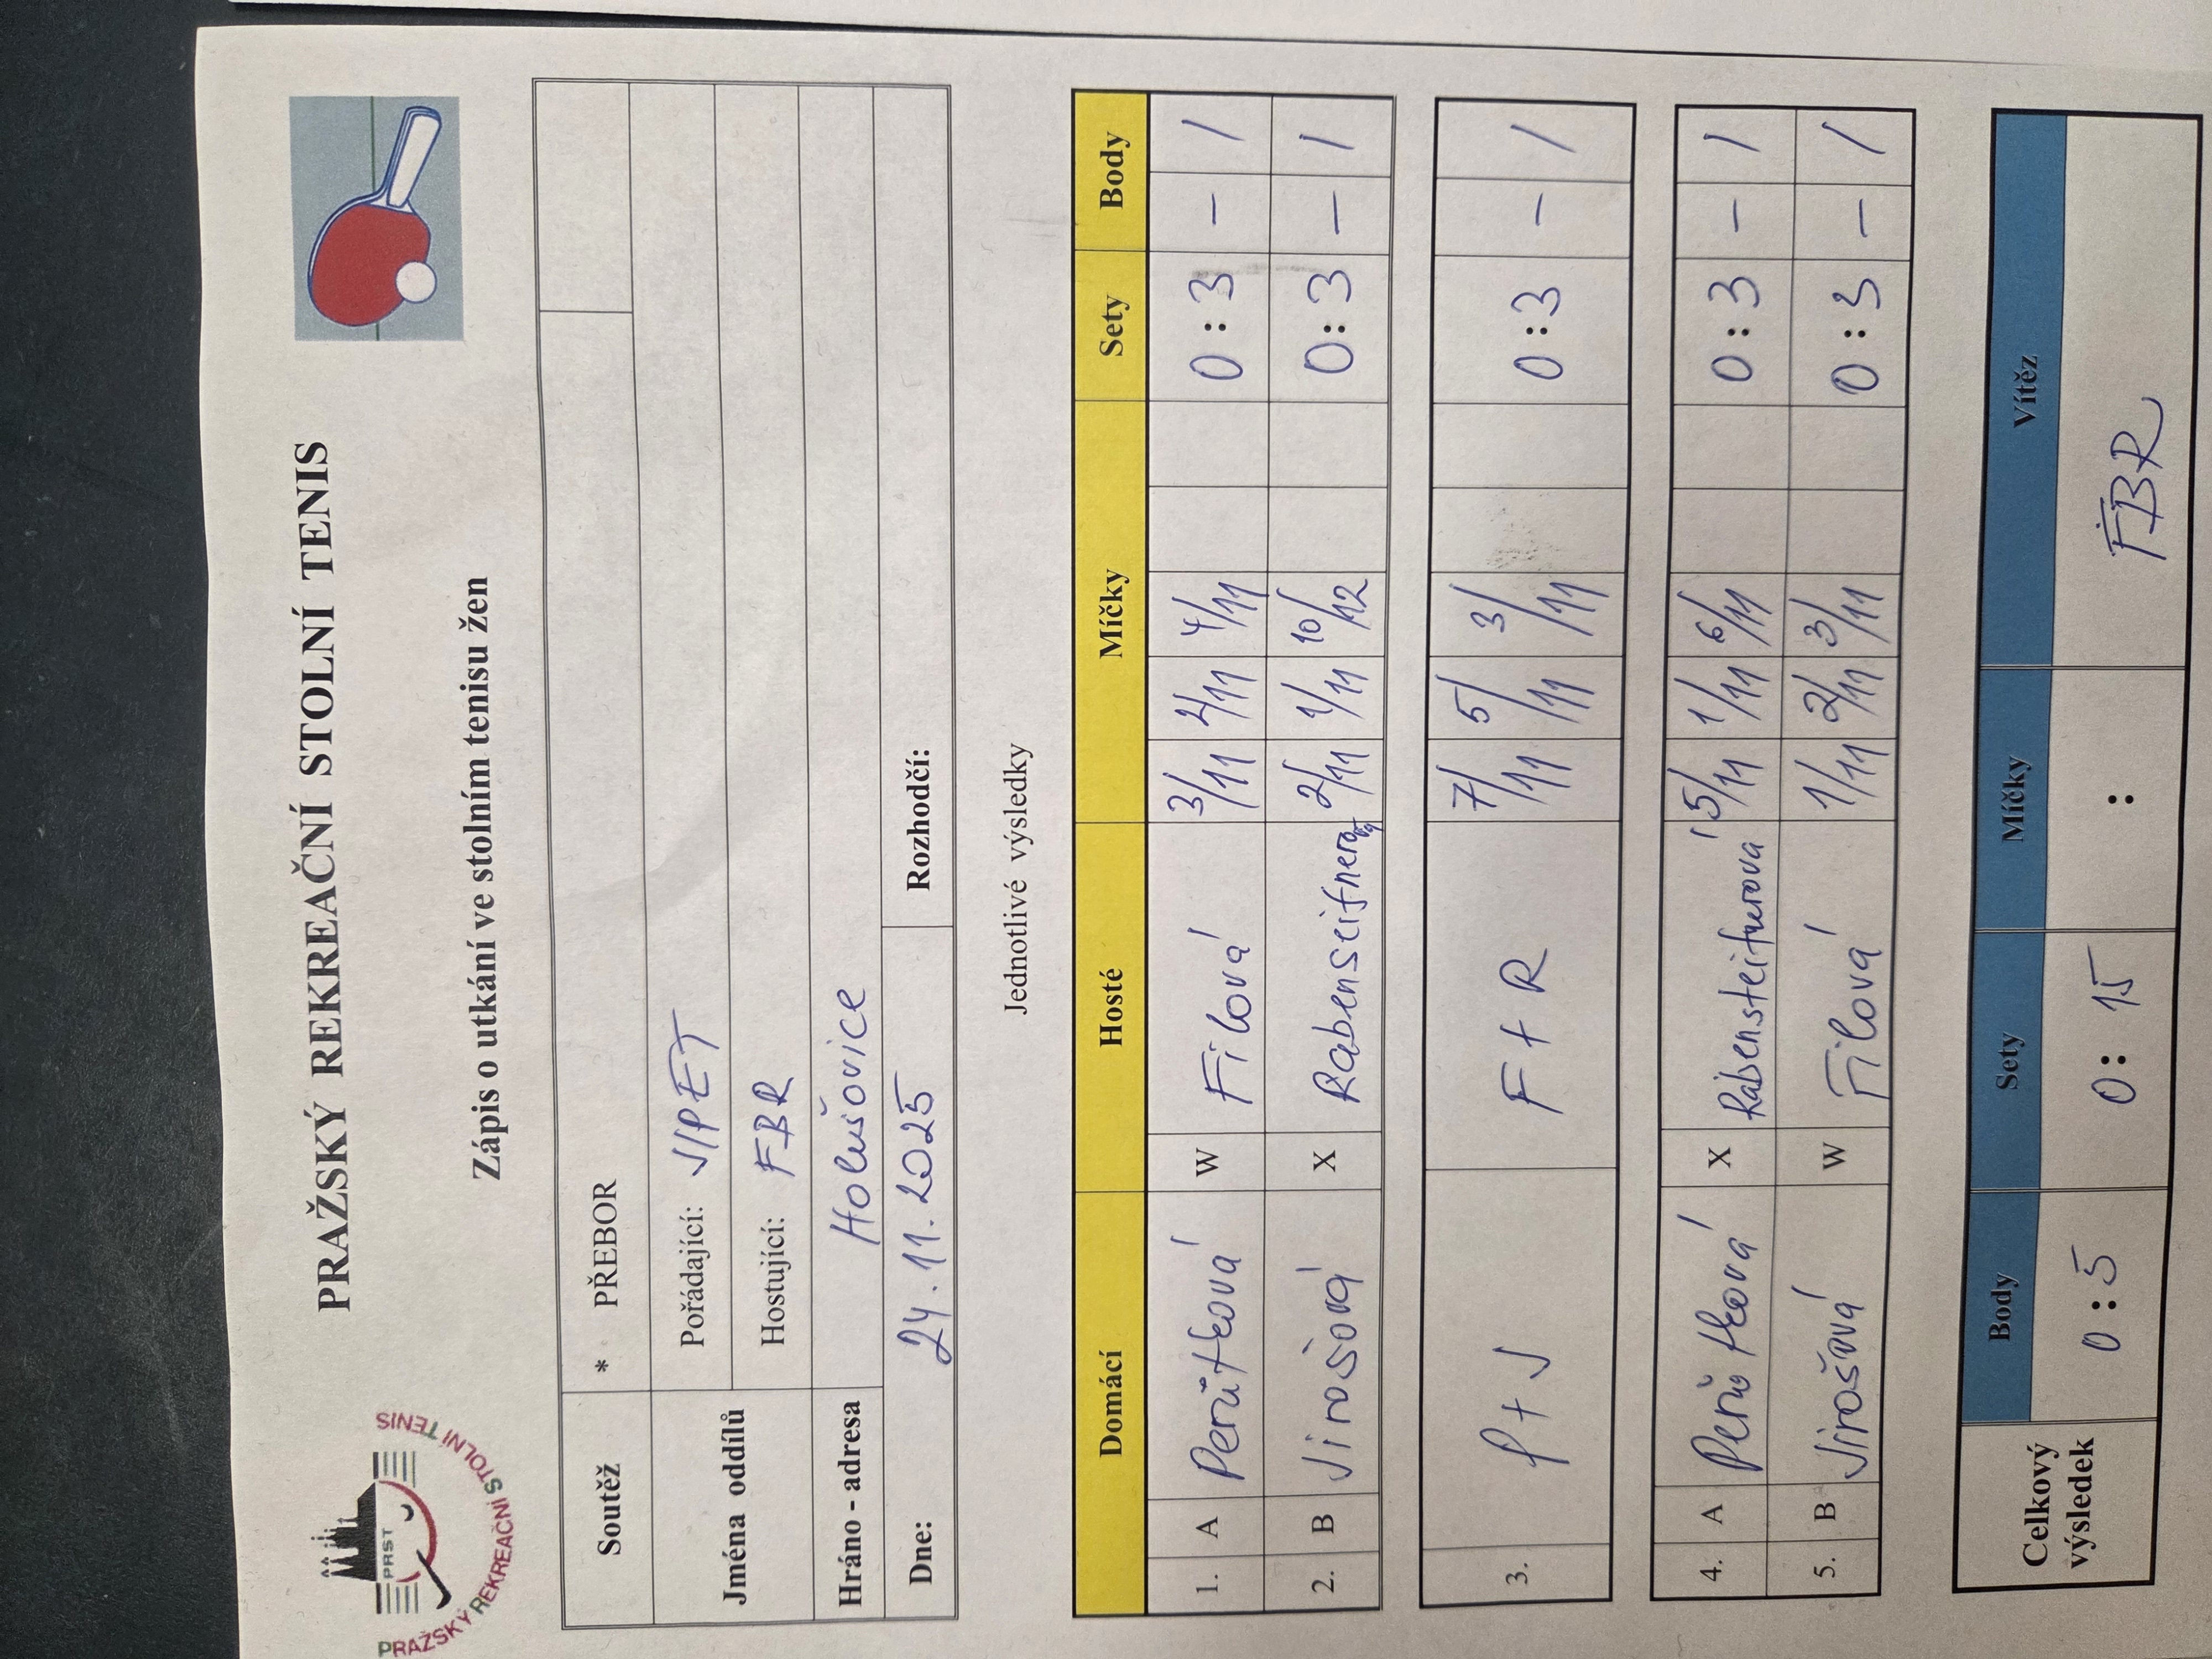 PRAŽSKÝ REKREAČNÍ STOLNÍ TENIS
PRST
PRAŽSKÝ REKREAČNÍ STOLNÍ TENIS
Zápis o utkání ve stolním tenisu žen
Soutěž * PŘEBOR
Jména oddílů Pořádající: JIPET
Hostující: FBR
Hráno - adresa Holušovice
Dne: 24.11.2025 Rozhodčí:
Jednotlivé výsledky
Domácí Hosté Míčky Sety Body
1. A Perůtková W Filová 3/11 2/11 4/11 0 : 3 – 1
2. B Jirošová X Rabenseifnerová 2/11 1/11 10/12 0 : 3 – 1
3. P + J F + R 7/11 5/11 3/11 0 : 3 – 1
4. A Perůtková X Rabensteifnerová 5/11 1/11 6/11 0 : 3 – 1
5. B Jirošová W Filová 1/11 2/11 3/11 0 : 3 – 1
Celkový výsledek Body Sety Míčky Vítěz
0 : 5 0 : 15 : FBR